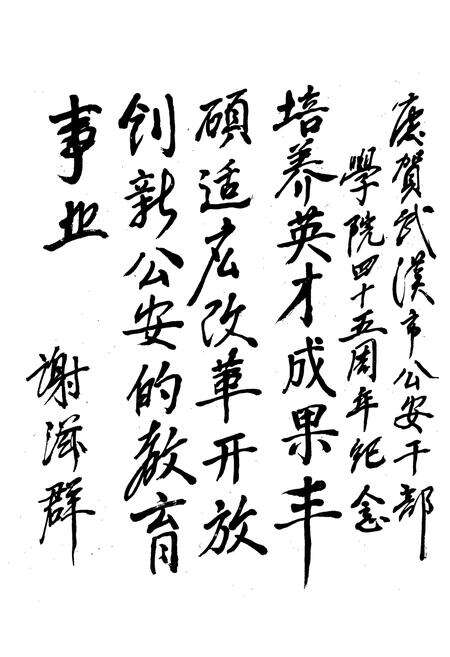 慶賀武漢市公安干部
學院四十五周年纪念
培养英才成果丰
碩适应改革开放
创新公安的教育
事业
謝滋群